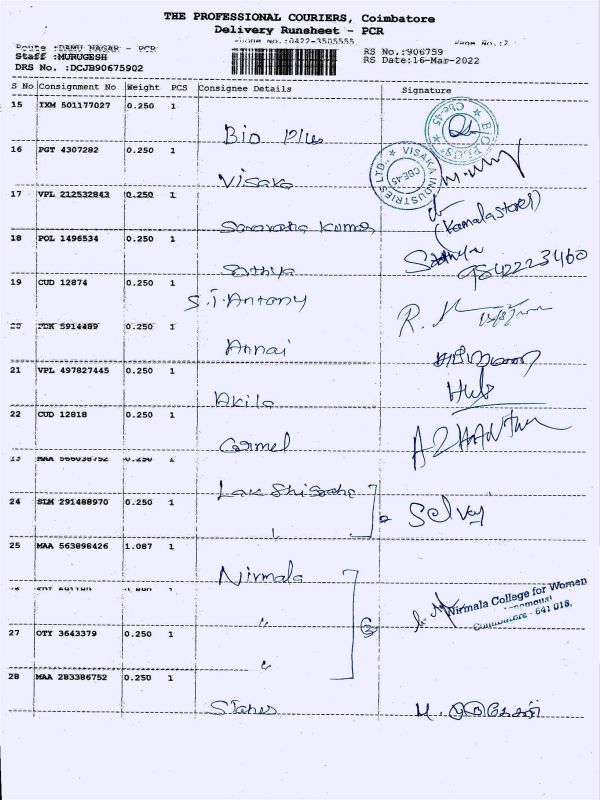 THE PROFESSIONAL COURIERS, Coimbatore
Delivery Runsheet - PCR
Phone No. :0422-3505555
Route :DAMU NAGAR - PCR
Staff :MURUGESH
DRS No. :DCJB90675902
RS No.:906759
RS Date:16-Mar-2022
S No Consignment No Weight PCS Consignee Details Signature
15 IXM 501177027 0.250 1
Bio Plus
BIO PLUS Cbe-45
16 PGT 4307282 0.250 1
Visaka
VISAKA INDUSTRIES LTD., CBE-45
17 VPL 212532843 0.250 1
Saravana Kumar
(Kamala stores)
18 POL 1496534 0.250 1
Sathya
Sathya
9842223460
19 CUD 12874 0.250 1
S.T. Antony
20 5914489 0.250 1
Annai
21 VPL 497827445 0.250 1
Akila
22 CUD 12818 0.250 1
Carmel
23 MAA 566038752 0.250 1
24 SLM 291488970 0.250 1
Selvaj
25 MAA 563898426 1.087 1
Nirmala
Nirmala College for Women
Coimbatore - 641 018.
27 OTY 3643379 0.250 1
"
28 MAA 283386752 0.250 1
Stanes